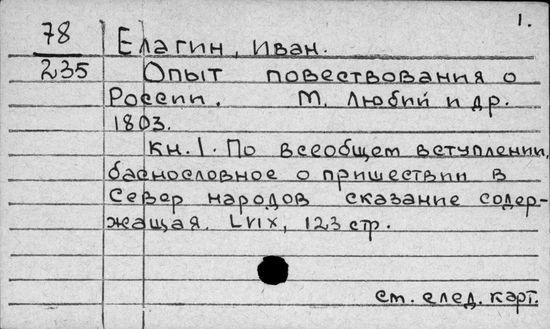 1.
78 Елагин, Иван.
235 Опыт повествования о
России. М. Любий и др.
1803.
кн. 1. По всеобщем вступлении,
баснословное о пришествии в
Север народов сказание содер-
жащая. LVIX, 123 стр.
ст. след. карт.